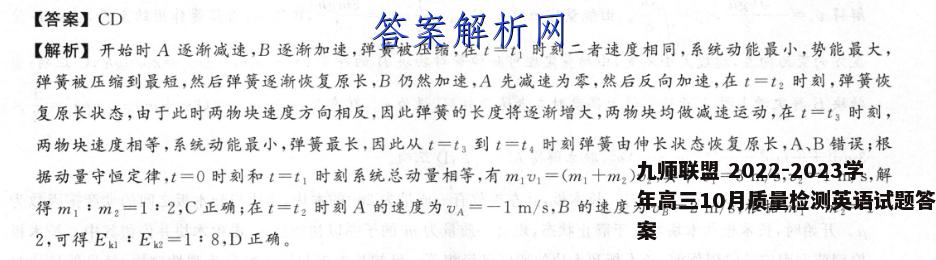 【答案】CD
答案解析网
【解析】开始时 A 逐渐减速,B 逐渐加速,弹簧被压缩,在 t=t₁ 时刻二者速度相同,系统动能最小,势能最大,
弹簧被压缩到最短,然后弹簧逐渐恢复原长,B 仍然加速,A 先减速为零,然后反向加速,在 t=t₂ 时刻,弹簧恢
复原长状态,由于此时两物块速度方向相反,因此弹簧的长度将逐渐增大,两物块均做减速运动,在 t=t₃ 时刻,
两物块速度相等,系统动能最小,弹簧最长,因此从 t=t₃ 到 t=t₄ 时刻弹簧由伸长状态恢复原长,A、B 错误;根
据动量守恒定律,t=0 时刻和 t=t₁ 时刻系统总动量相等,有 m₁v₁=(m₁+m₂) m/s,解
得 m₁∶m₂=1∶2,C 正确;在 t=t₂ 时刻 A 的速度为 v_A=-1 m/s,B 的速度为
2,可得 E_k1∶E_k2=1∶8,D 正确。
九师联盟 2022-2023学
年高三10月质量检测英语试题答
案